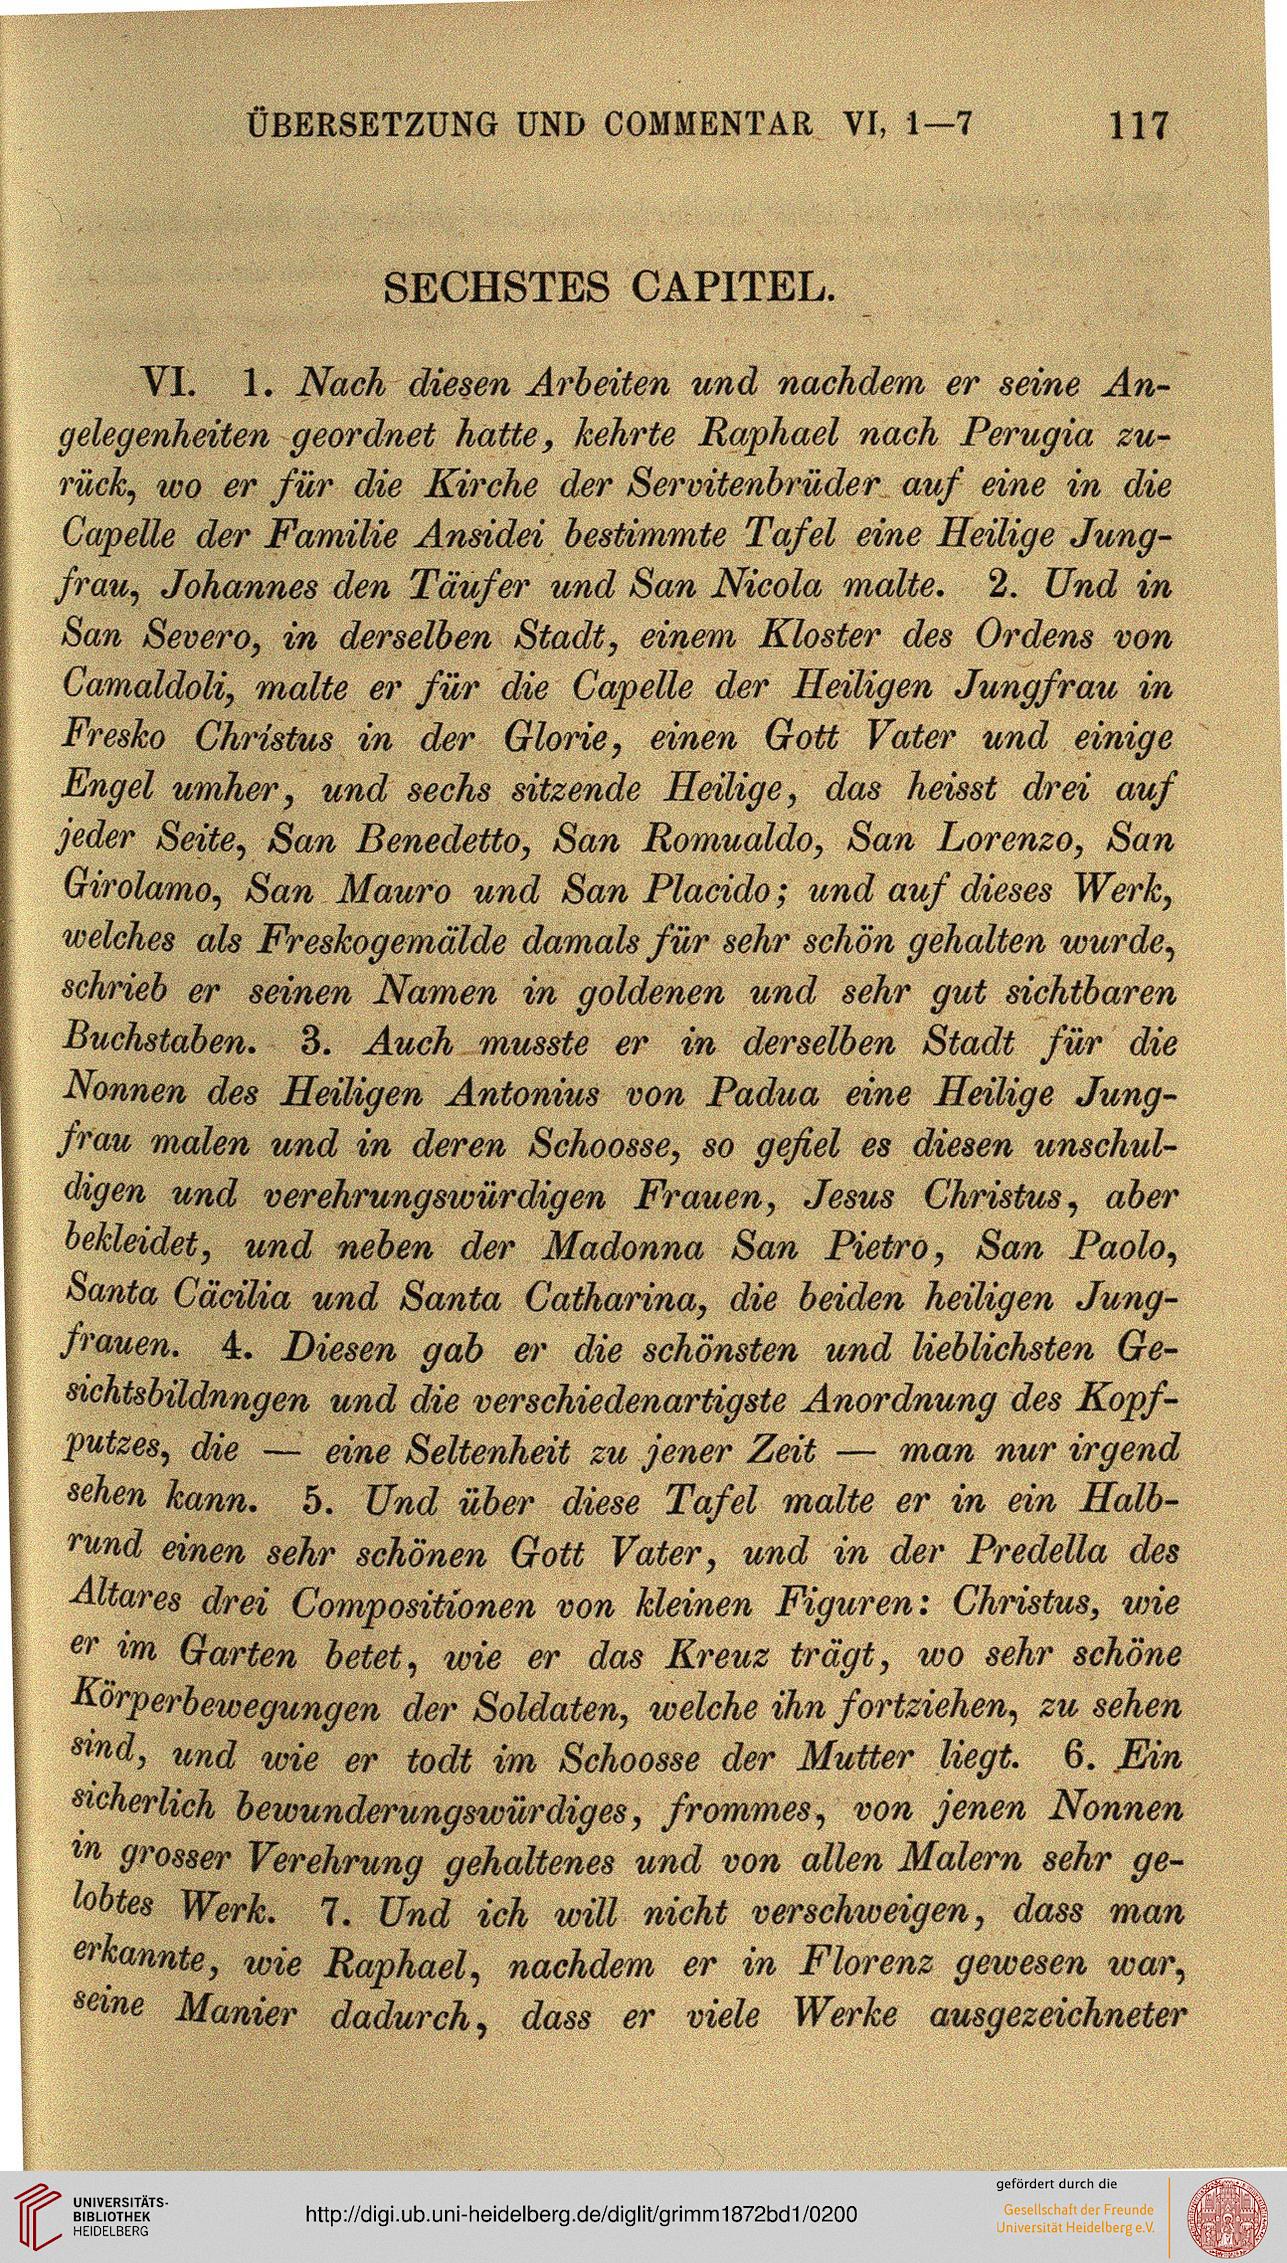 ÜBERSETZUNG UND COMMENTAR VI, 1—7 117
SECHSTES CAPITEL.
VI. 1. Nach diesen Arbeiten und nachdem er seine An-
gelegenheiten geordnet hatte, kehrte Raphael nach Perugia zu-
rück, wo er für die Kirche der Servitenbrüder auf eine in die
Capelle der Familie Ansidei bestimmte Tafel eine Heilige Jung-
frau, Johannes den Täufer und San Nicola malte. 2. Und in
San Severo, in derselben Stadt, einem Kloster des Ordens von
Camaldoli, malte er für die Capelle der Heiligen Jungfrau in
Fresko Christus in der Glorie, einen Gott Vater und einige
Engel umher, und sechs sitzende Heilige, das heisst drei auf
jeder Seite, San Benedetto, San Romualdo, San Lorenzo, San
Girolamo, San Mauro und San Placido; und auf dieses Werk,
welches als Freskogemälde damals für sehr schön gehalten wurde,
schrieb er seinen Namen in goldenen und sehr gut sichtbaren
Buchstaben. 3. Auch musste er in derselben Stadt für die
Nonnen des Heiligen Antonius von Padua eine Heilige Jung-
frau malen und in deren Schoosse, so gefiel es diesen unschul-
digen und verehrungswürdigen Frauen, Jesus Christus, aber
bekleidet, und neben der Madonna San Pietro, San Paolo,
Santa Cäcilia und Santa Catharina, die beiden heiligen Jung-
frauen. 4. Diesen gab er die schönsten und lieblichsten Ge-
sichtsbildnngen und die verschiedenartigste Anordnung des Kopf-
putzes, die — eine Seltenheit zu jener Zeit — man nur irgend
sehen kann. 5. Und über diese Tafel malte er in ein Halb-
rund einen sehr schönen Gott Vater, und in der Predella des
Altares drei Compositionen von kleinen Figuren: Christus, wie
er im Garten betet, wie er das Kreuz trägt, wo sehr schöne
Körperbewegungen der Soldaten, welche ihn fortziehen, zu sehen
sind, und wie er todt im Schoosse der Mutter liegt. 6. Ein
sicherlich bewunderungswürdiges, frommes, von jenen Nonnen
in grosser Verehrung gehaltenes und von allen Malern sehr ge-
lobtes Werk. 7. Und ich will nicht verschweigen, dass man
erkannte, wie Raphael, nachdem er in Florenz gewesen war,
seine Manier dadurch, dass er viele Werke ausgezeichneter
UNIVERSITÄTS-
BIBLIOTHEK
HEIDELBERG
http://digi.ub.uni-heidelberg.de/diglit/grimm1872bd1/0200
gefördert durch die
Gesellschaft der Freunde
Universität Heidelberg e.V.